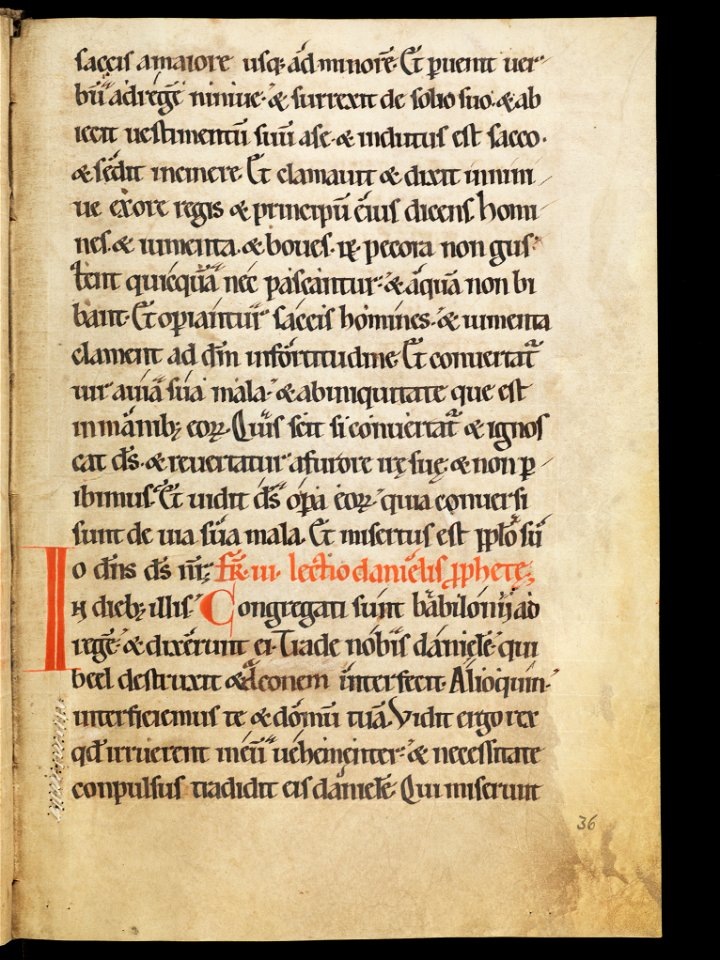 saccis a maiore usq; ad minorē. Et ꝑuenit uer
bū ad regē niniue. & surrexit de solio suo. & ab
iecit uestimentū suū a se. & indutus est sacco.
& sedit in cinere. Et clamauit & dixit in nini
ue ex ore regis & principū eius dicens. homi
nes. & iumenta. & boues. & pecora non gus
tent quicquā nec pascantur. & aquā non bi
bant. Et operiantur saccis homines. & iumenta
clament ad dn̄m in fortitudine. Et conuertat̄
uir a uia sua mala. & ab iniquitate que est
in manib; eoꝝ. Quis scit si conuertat̄ & ignos
cat ds̄. & reuertatur a furore irę suę. & non ꝑ
ibimus. Et uidit ds̄ opa eoꝝ. quia conuersi
sunt de uia sua mala. Et misertus est pplo suo
dn̄s ds̄ nr̄. Fr̄. iii. lectio danielis ꝓphetę.
In dieb; illis. Congregati sunt babilonii ad
regē. & dixerunt ei. Trade nobis danielē. qui
beel destruxit & draconem interfecit. Alioquin
interficiemus te & domū tuā. Vidit ergo rex
qd̄ irruerent in eū uehementer. & necessitate
conpulsus tradidit eis danielē. Qui miserunt
36